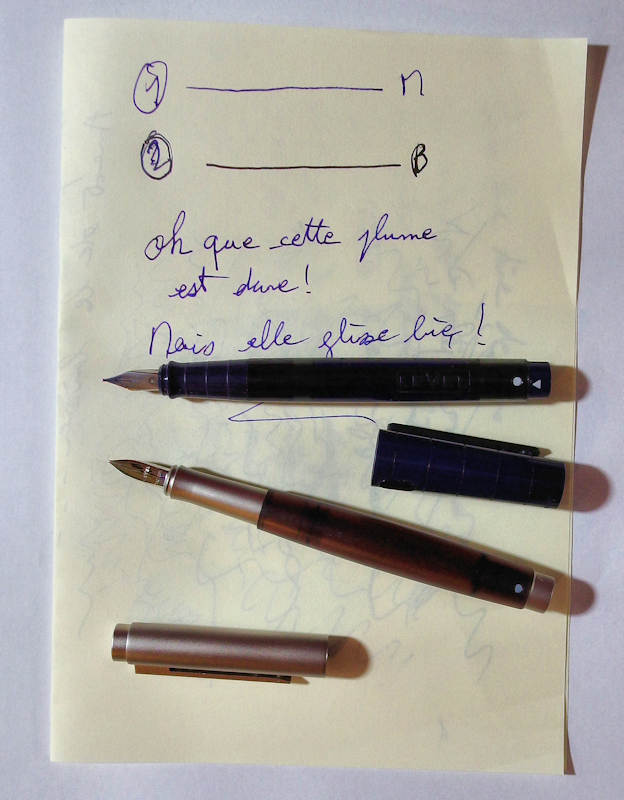 1 M
2 B
oh que cette plume
est dure!
Mais elle glisse bien!
LEVEL